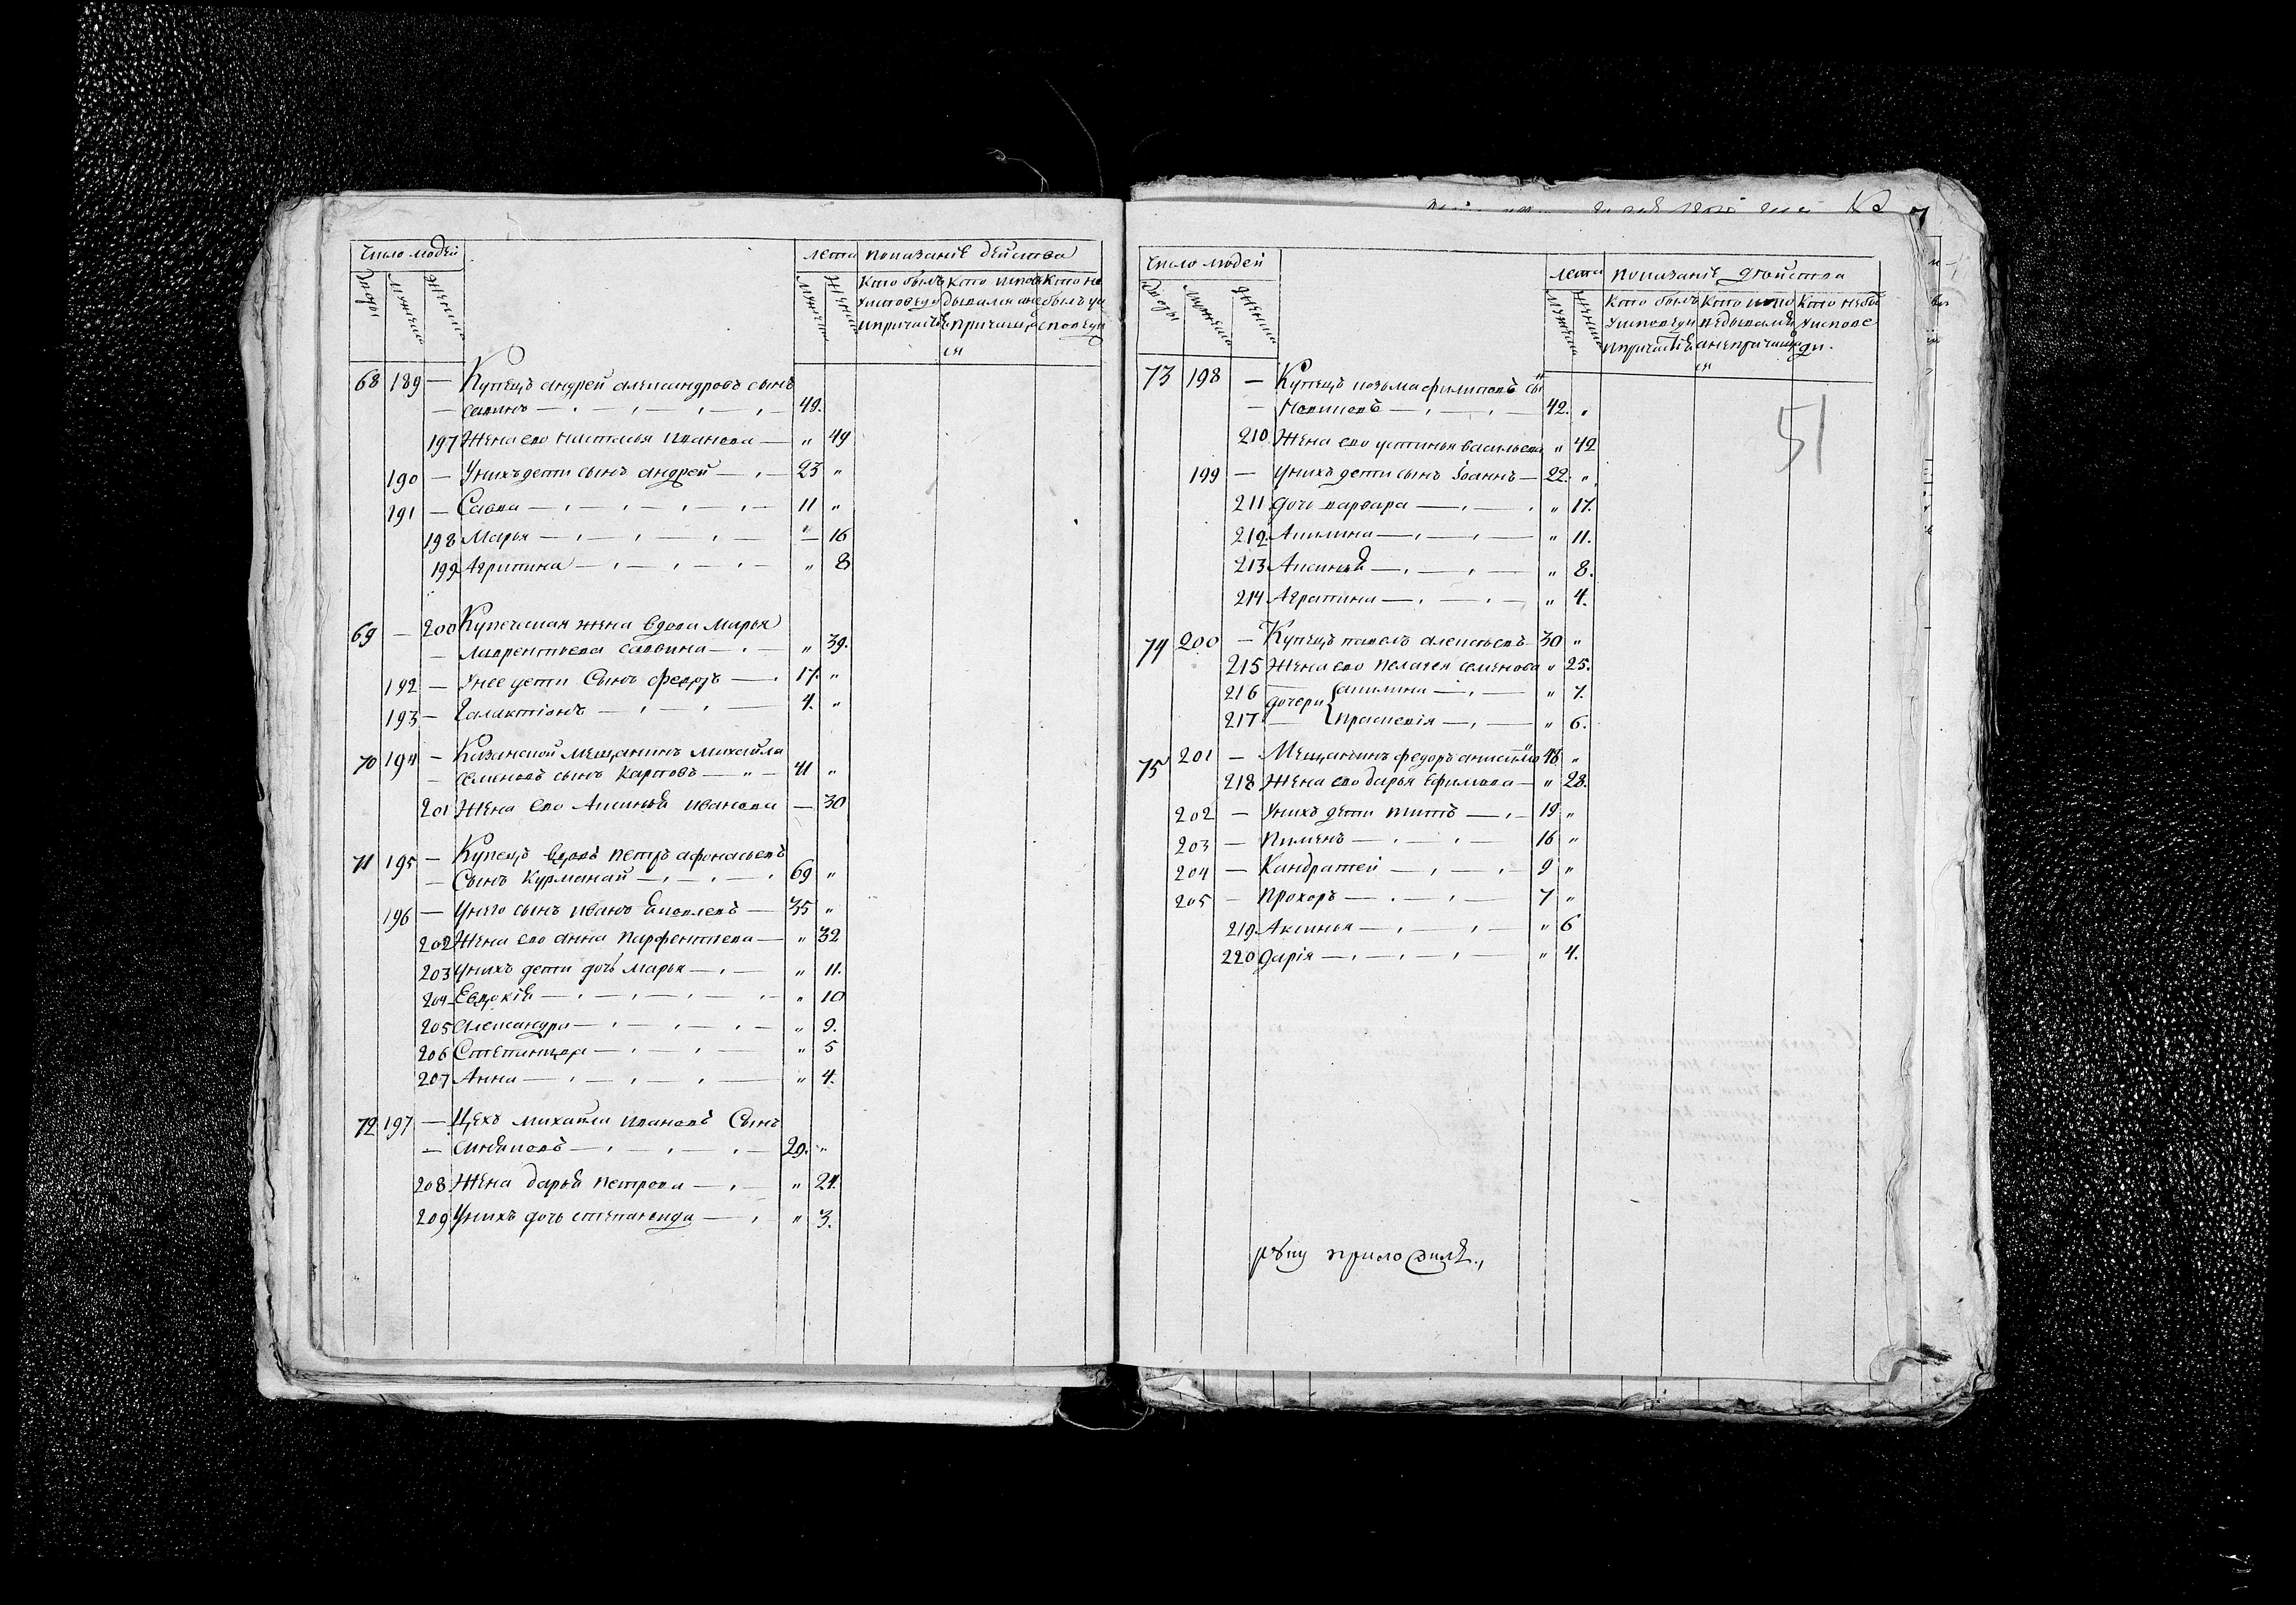 Число людей лета показание действа
Дворы мужеска женска мужеска женска Кто былъ Кто испове Кто не
уисповеди дывался ане былъ уи
ипричастия причаща споведи
ся
68 189 — Купецъ андрей александровъ сынъ
— савинъ — 49.
197 Жена его Наталья Иванова — " 49
190 — Унихъ дети сынъ андрей — 23 "
191 — Савва — 11 "
198 Марья — " 16
199 Агрипина — " 8
69 — 200 Купеческая жена вдова Марья
— лаврентьева савина — " 39.
192 — Унее дети Сынъ федоръ — 17. "
193 — Галактіонъ — 4. "
70 194 — Казанской мещанинъ михайла
— семеновъ сынъ Карповъ — 41 "
201 Жена его Аксинья иванова — 30
71 195 — Купецъ вдовъ петръ афонасьевъ
— Сынъ Курманай — 69 "
196 — Унего сынъ иванъ — 35 "
202 Жена его анна парфентиева — " 32
203 Унихъ дети дочь Марья — " 11.
204 Евдокія — " 10
205 александра — " 9.
206 — " 5
207 Анна — " 4.
72 197 — Цехъ михайла ивановъ Сынъ
— 29. "
208 Жена дарья петрова — " 24.
209 Унихъ дочь степанида — " 3.
Число людей лета показание действа
Дворы мужеска женска мужеска женска Кто былъ Кто испо Кто небы
уисповеди ведывался уиспове
ипричастия анепричащал ди.
ся
73 198 — Купецъ козьма филиповъ сы
— Новиковъ — 42. "
210 Жена его устинья васильева " 42
199 — Унихъ дети сынъ іоаннъ — 22. "
211 дочь варвара — " 17.
212 Акилина — " 11.
213 Аксинья — " 8.
214 Аграпина — " 4.
74 200 — Купецъ павелъ алексеевъ 30 "
215 Жена его пелагея семенова " 25.
216 — дочери { акилина — " 7.
217 — прасковія — " 6.
75 201 — Мещанинъ федоръ 48 "
218 Жена его дарья Ефимова — " 28.
202 — Унихъ дети титъ — 19 "
203 — Пименъ — 16 "
204 — Кандратей — 9 "
205 — Прохоръ — 7 "
219 Аксинья — " 6
220 дарія — " 4.
51
руку приложилъ.